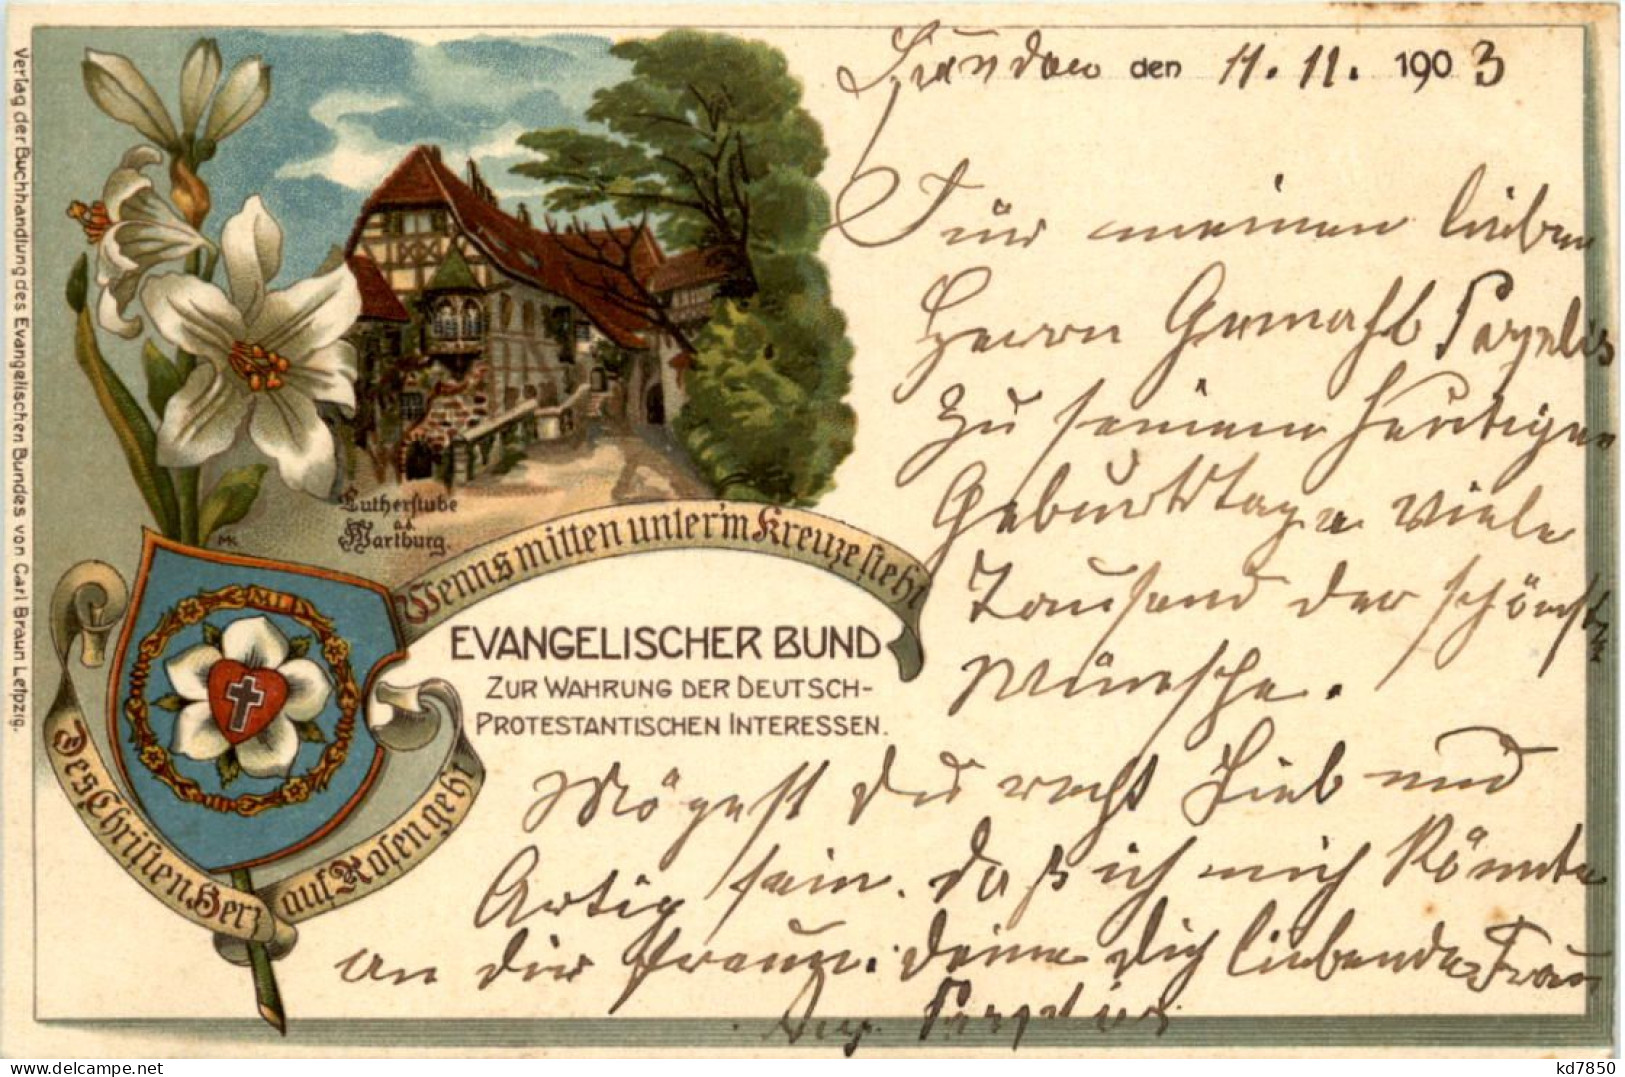 den 11. 11. 1903
Für meinen lieben
Herrn Gemahl
zu seinem heutigen
Geburtstage viele
Tausend der schönsten
Wünsche.
Mögest du recht Lieb und
Artig sein. daß ich mich könnte
an dir freuen. deine dich liebende Frau
Verlag der Buchhandlung des Evangelischen Bundes von Carl Braun Leipzig.
Lutherstube
a.d.
Wartburg.
MK
Wenns mitten unter'm Kreuze steht
EVANGELISCHER BUND
ZUR WAHRUNG DER DEUTSCH-
PROTESTANTISCHEN INTERESSEN.
Des Christen Herz
auf Rosen geht
www.delcampe.net
kd7850